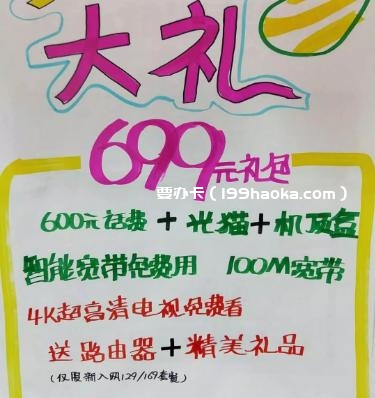 大礼
699元礼包
要办卡（199haoka.com）
600元话费+光猫+机顶盒
智能宽带免费用 100M宽带
4K超高清电视免费看
送路由器+精美礼品
（仅限新入网129/169套餐）